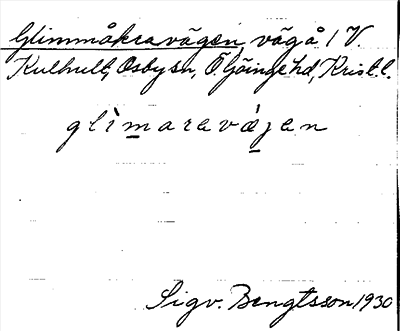 Glimmåkravägen, väg å 1 V.
Kulhult, Osby sn, Ö. Göinge hd, Krist. l.
glìmaravä̀gen
Sigv. Bengtsson 1930